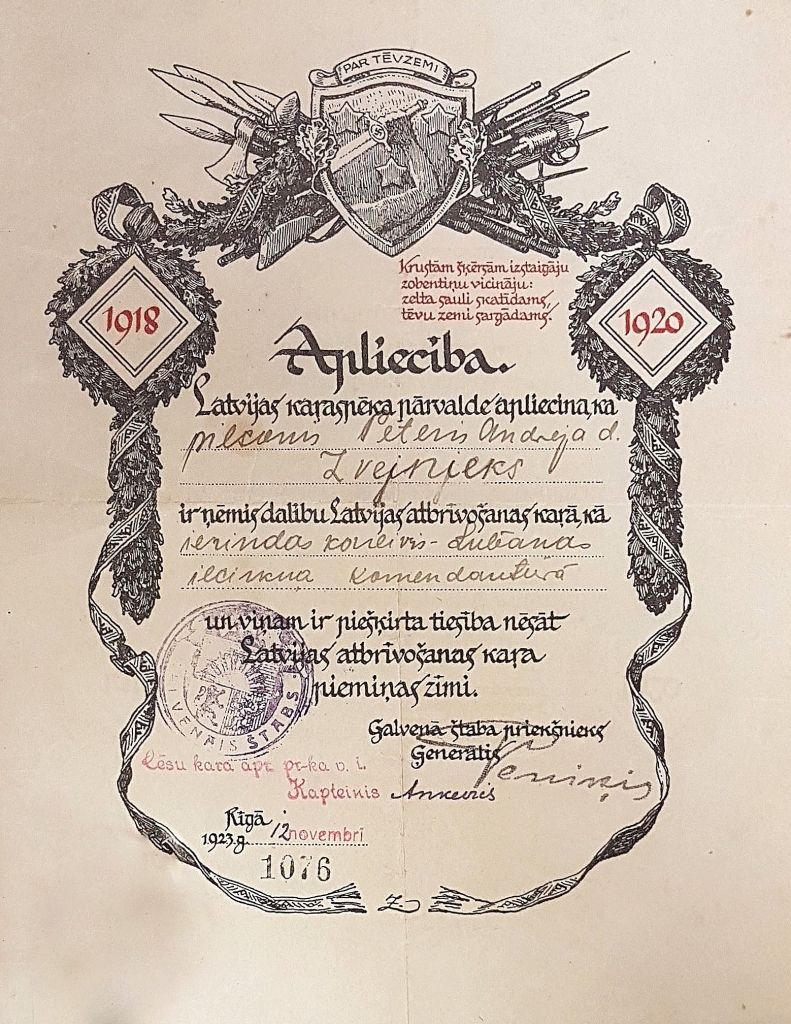 PAR TĒVZEMI
1918
1920
Krustām šķērsām izstaigāju
zobentiņu vicināju:
zelta sauli skatīdams,
tēvu zemi sargādams.
Apliecība.
Latvijas karaspēka pārvalde apliecina, ka
pilsonis Pēteris Andreja d.
Zvejnieks
ir ņēmis dalību Latvijas atbrīvošanas karā, kā
ierindas kareivis - Lubānas
iecirkņa komendantūrā
un viņam ir piešķirta tiesība nēsāt
Latvijas atbrīvošanas kara
piemiņas zīmi.
Galvenā štaba priekšnieks
Ģenerālis Peniķis
VENAIS ŠTABS
Cēsu kara apr. pr-ka v. i.
Kapteinis Ankevics
Rīgā
1923.g. 12 novembrī
1076
Z.